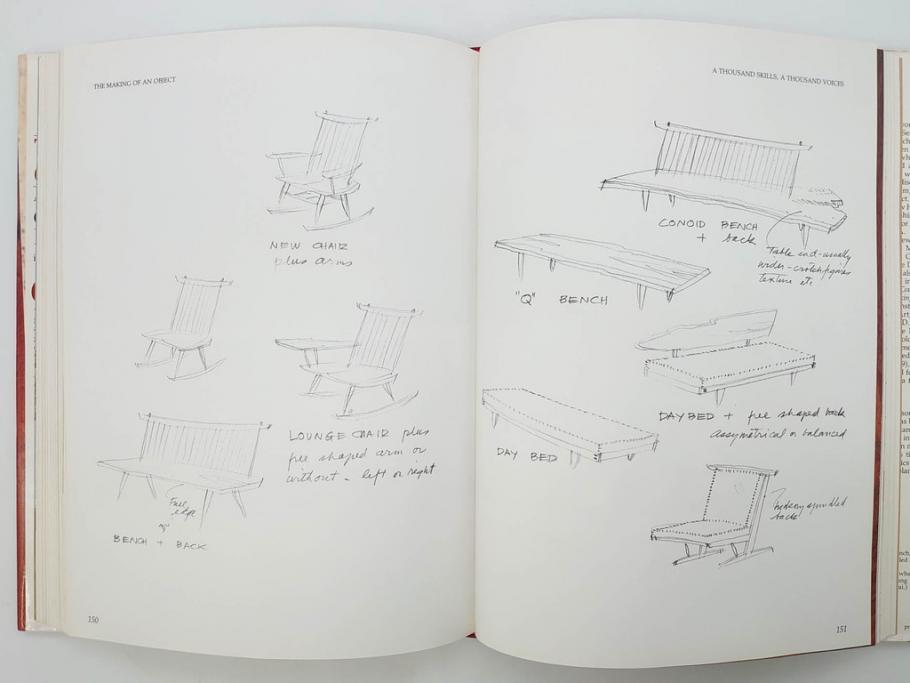 THE MAKING OF AN OBJECT
NEW CHAIR
plus arms
LOUNGE CHAIR plus
free shaped arm or
without - left or right
Free
edge
BENCH + BACK
150
A THOUSAND SKILLS, A THOUSAND VOICES
CONOID BENCH
+ back
Table end - usually
wider - crotch
texture etc
"Q" BENCH
DAY BED + free shaped back
assymetrical or balanced
DAY BED
hickory spindled
back
151